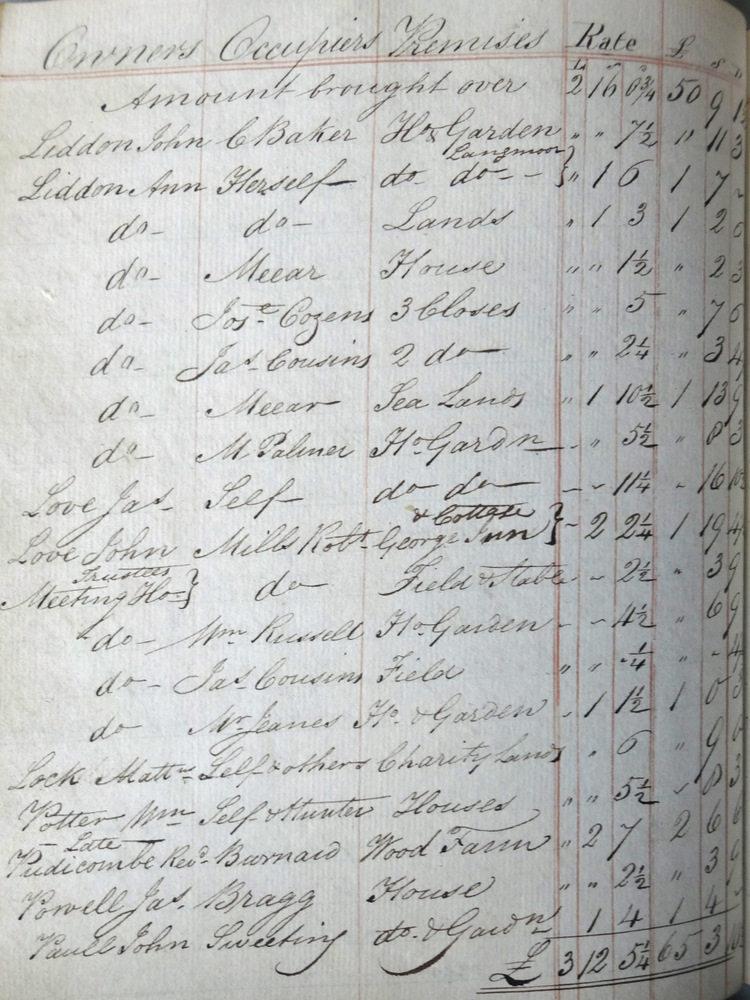 Owners Occupiers Premises Rate £ s
Amount brought over 2 16 0¾ 50 9
Liddon John C Baker Ho & Garden " " 7½ " 11 3
Langmoor
Liddon Ann Herself do do - - } " 1 6 1 7
do - do - Lands " 1 3 1 2 6
do - Meear House " " 1½ " 2 3
do - Jos.e Cozens 3 Closes " " 5 " 7 6
do - Jas. Cousins 2 do " " 2¼ " 3 4
do - Meear Sea Lands " 1 10½ 1 13 9
do - M Palmer Ho. Gardn - " 5½ " 8 3
Love Jas. Self do do - - 11¼ - 16 10
& Cottage
Love John Mills Robt. George Inn } - 2 2¼ 1 19 4
Trustees
Meeting Ho } do Field & Stable - - 2½ " 3 9
do - Wm Russell Ho. Garden - - 4½ " 6 9
do - Jas. Cousins Field " " -¼ " - 4
do Mr Jeanes Ho. & Garden " 1 1½ 1 0
Lock Matt.w Self & others Charity Lands " 6 " 9
Potter Wm Self & Hunter Houses " " 5½ - 8 3
Late
Pudicombe Revd. Barnard Wood Farm " 2 7 2 6 6
Powell Jas. Bragg House " " 2½ " 3 9
Paull John Sweeting do. & Gardn 1 4 1 4
£ 3 12 5¼ 65 3